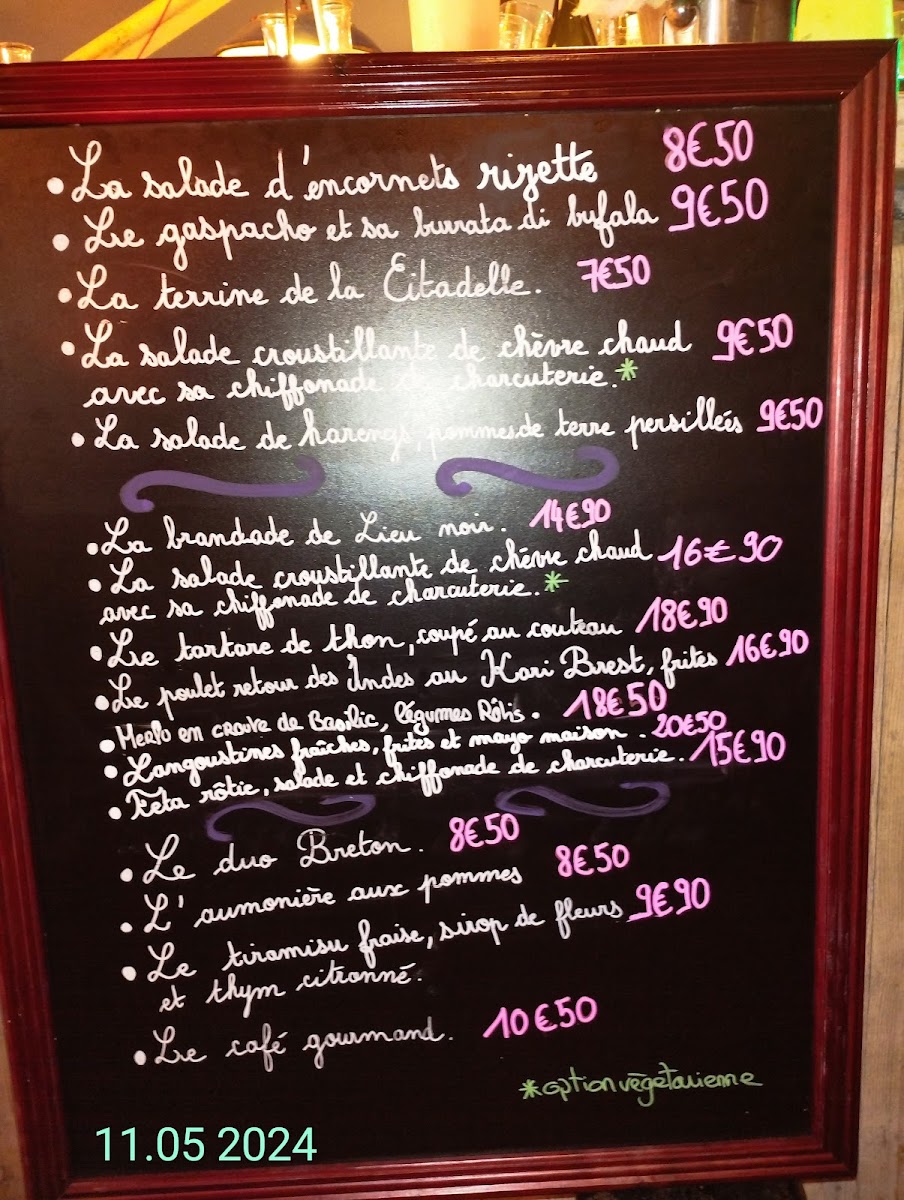 • La salade d'encornets rizette 8€50
• Le gaspacho et sa burrata di bufala 9€50
• La terrine de la Citadelle. 7€50
• La salade croustillante de chèvre chaud 9€50
avec sa chiffonade de charcuterie.*
• La salade de harengs, pommes de terre persillées 9€50
• La brandade de Lieu noir. 14€90
• La salade croustillante de chèvre chaud 16€90
avec sa chiffonade de charcuterie.*
• Le tartare de thon, coupé au couteau 18€90
• Le poulet retour des Indes au Kari Brest, frites 16€90
• Merlu en croute de Basilic, légumes Rôtis. 18€50
• Langoustines fraîches, frites et mayo maison. 20€50
• Feta rôtie, salade et chiffonade de charcuterie. 15€90
• Le duo Breton. 8€50
• L'aumonière aux pommes 8€50
• Le tiramisu fraise, sirop de fleurs 9€90
et thym citronné.
• Le café gourmand. 10€50
*option végétarienne
11.05 2024